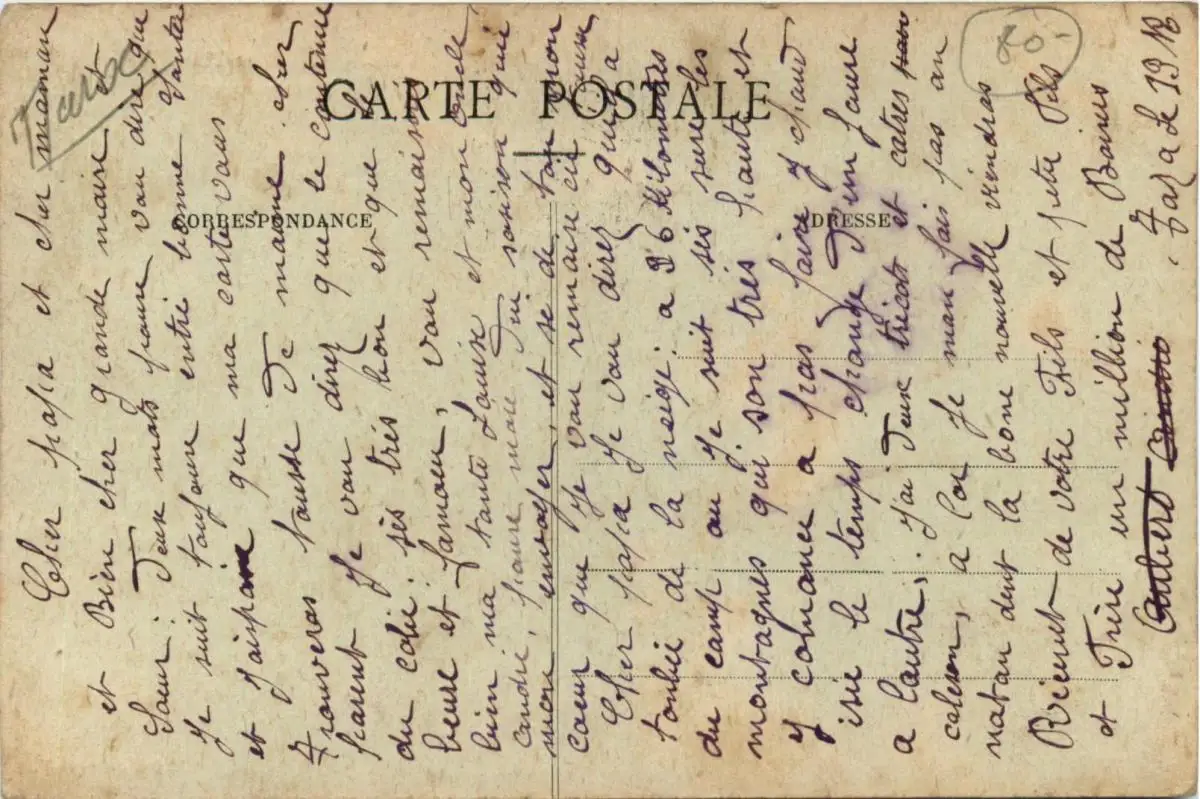 CARTE POSTALE
CORRESPONDANCE
ADRESSE
Taza Le 19 18
Cher papa et cher maman
et Bien cher grande maire et
Soeur : deux mots pour vou dire que
Je suit toujour entré bonne Santée
et J'aispair que ma carte vous
trouveras tousse de maime cher
parent Je vou direz que le contenue
du colie : jès très bon et que le
beure et janson, vou remair
bien ma tante Louise et mon oncle
candre, poure mau dui sosison qui
mon envoyer, et se de ton mon
coeur que Je vou remaircie
Cher papa Je vou direz quil a
tonbée de la neige : a 36 Kilomètres
du camp ou Je suit sis sure les
montagnes qui son très haute et
y comance a pas faire y chaud
isie le temps change d'un joure
a lautre, j'ai deux tricots et catres
caleson, a lor Je man fais pas an
natandent la bone nouvelle viendras
Rieu de votre Fils et petit Fils
et Frère un million de Baisers
Aubert